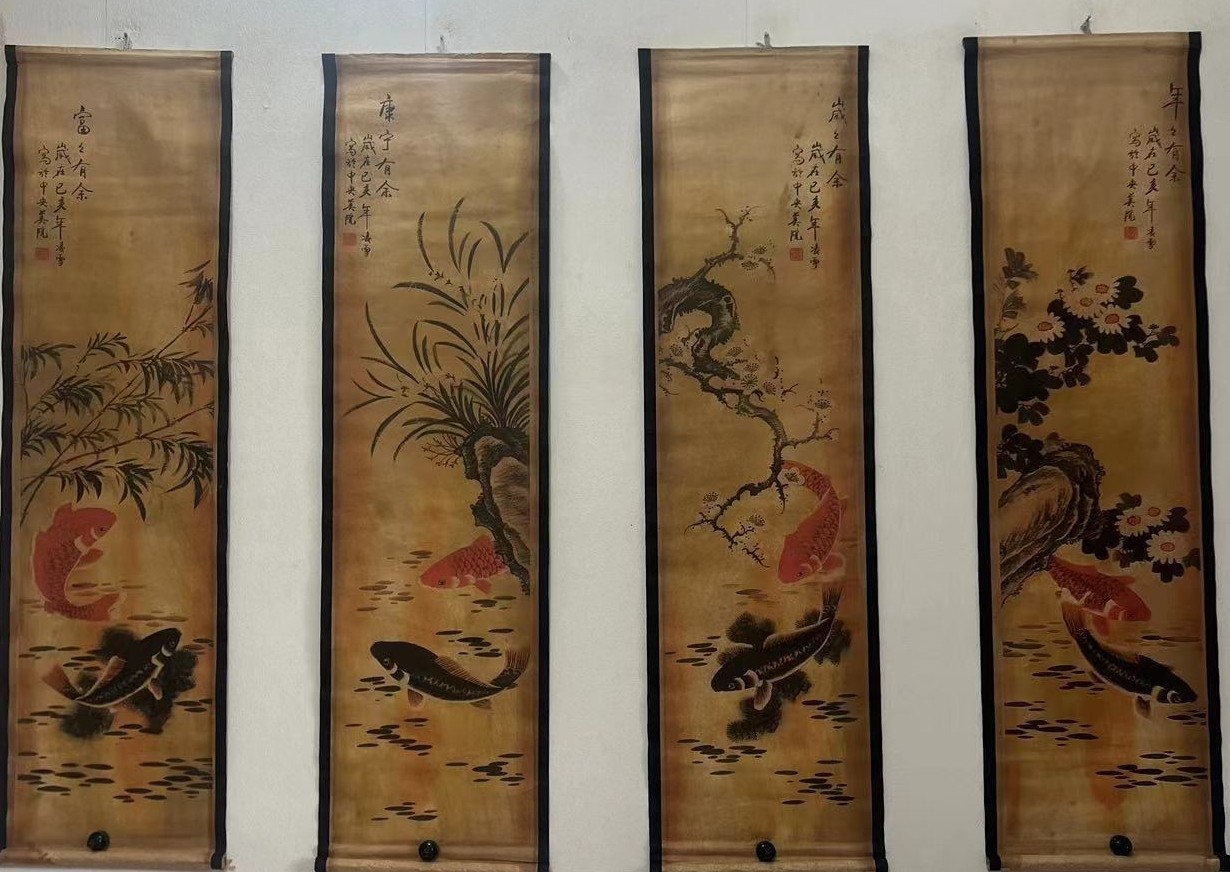 年々有余
歲在己亥年凌雪
寫於中央美院
歲々有余
歲在己亥年凌雪
寫於中央美院
康宁有余
歲在己亥年凌雪
寫於中央美院
富々有余
歲在己亥年凌雪
寫於中央美院